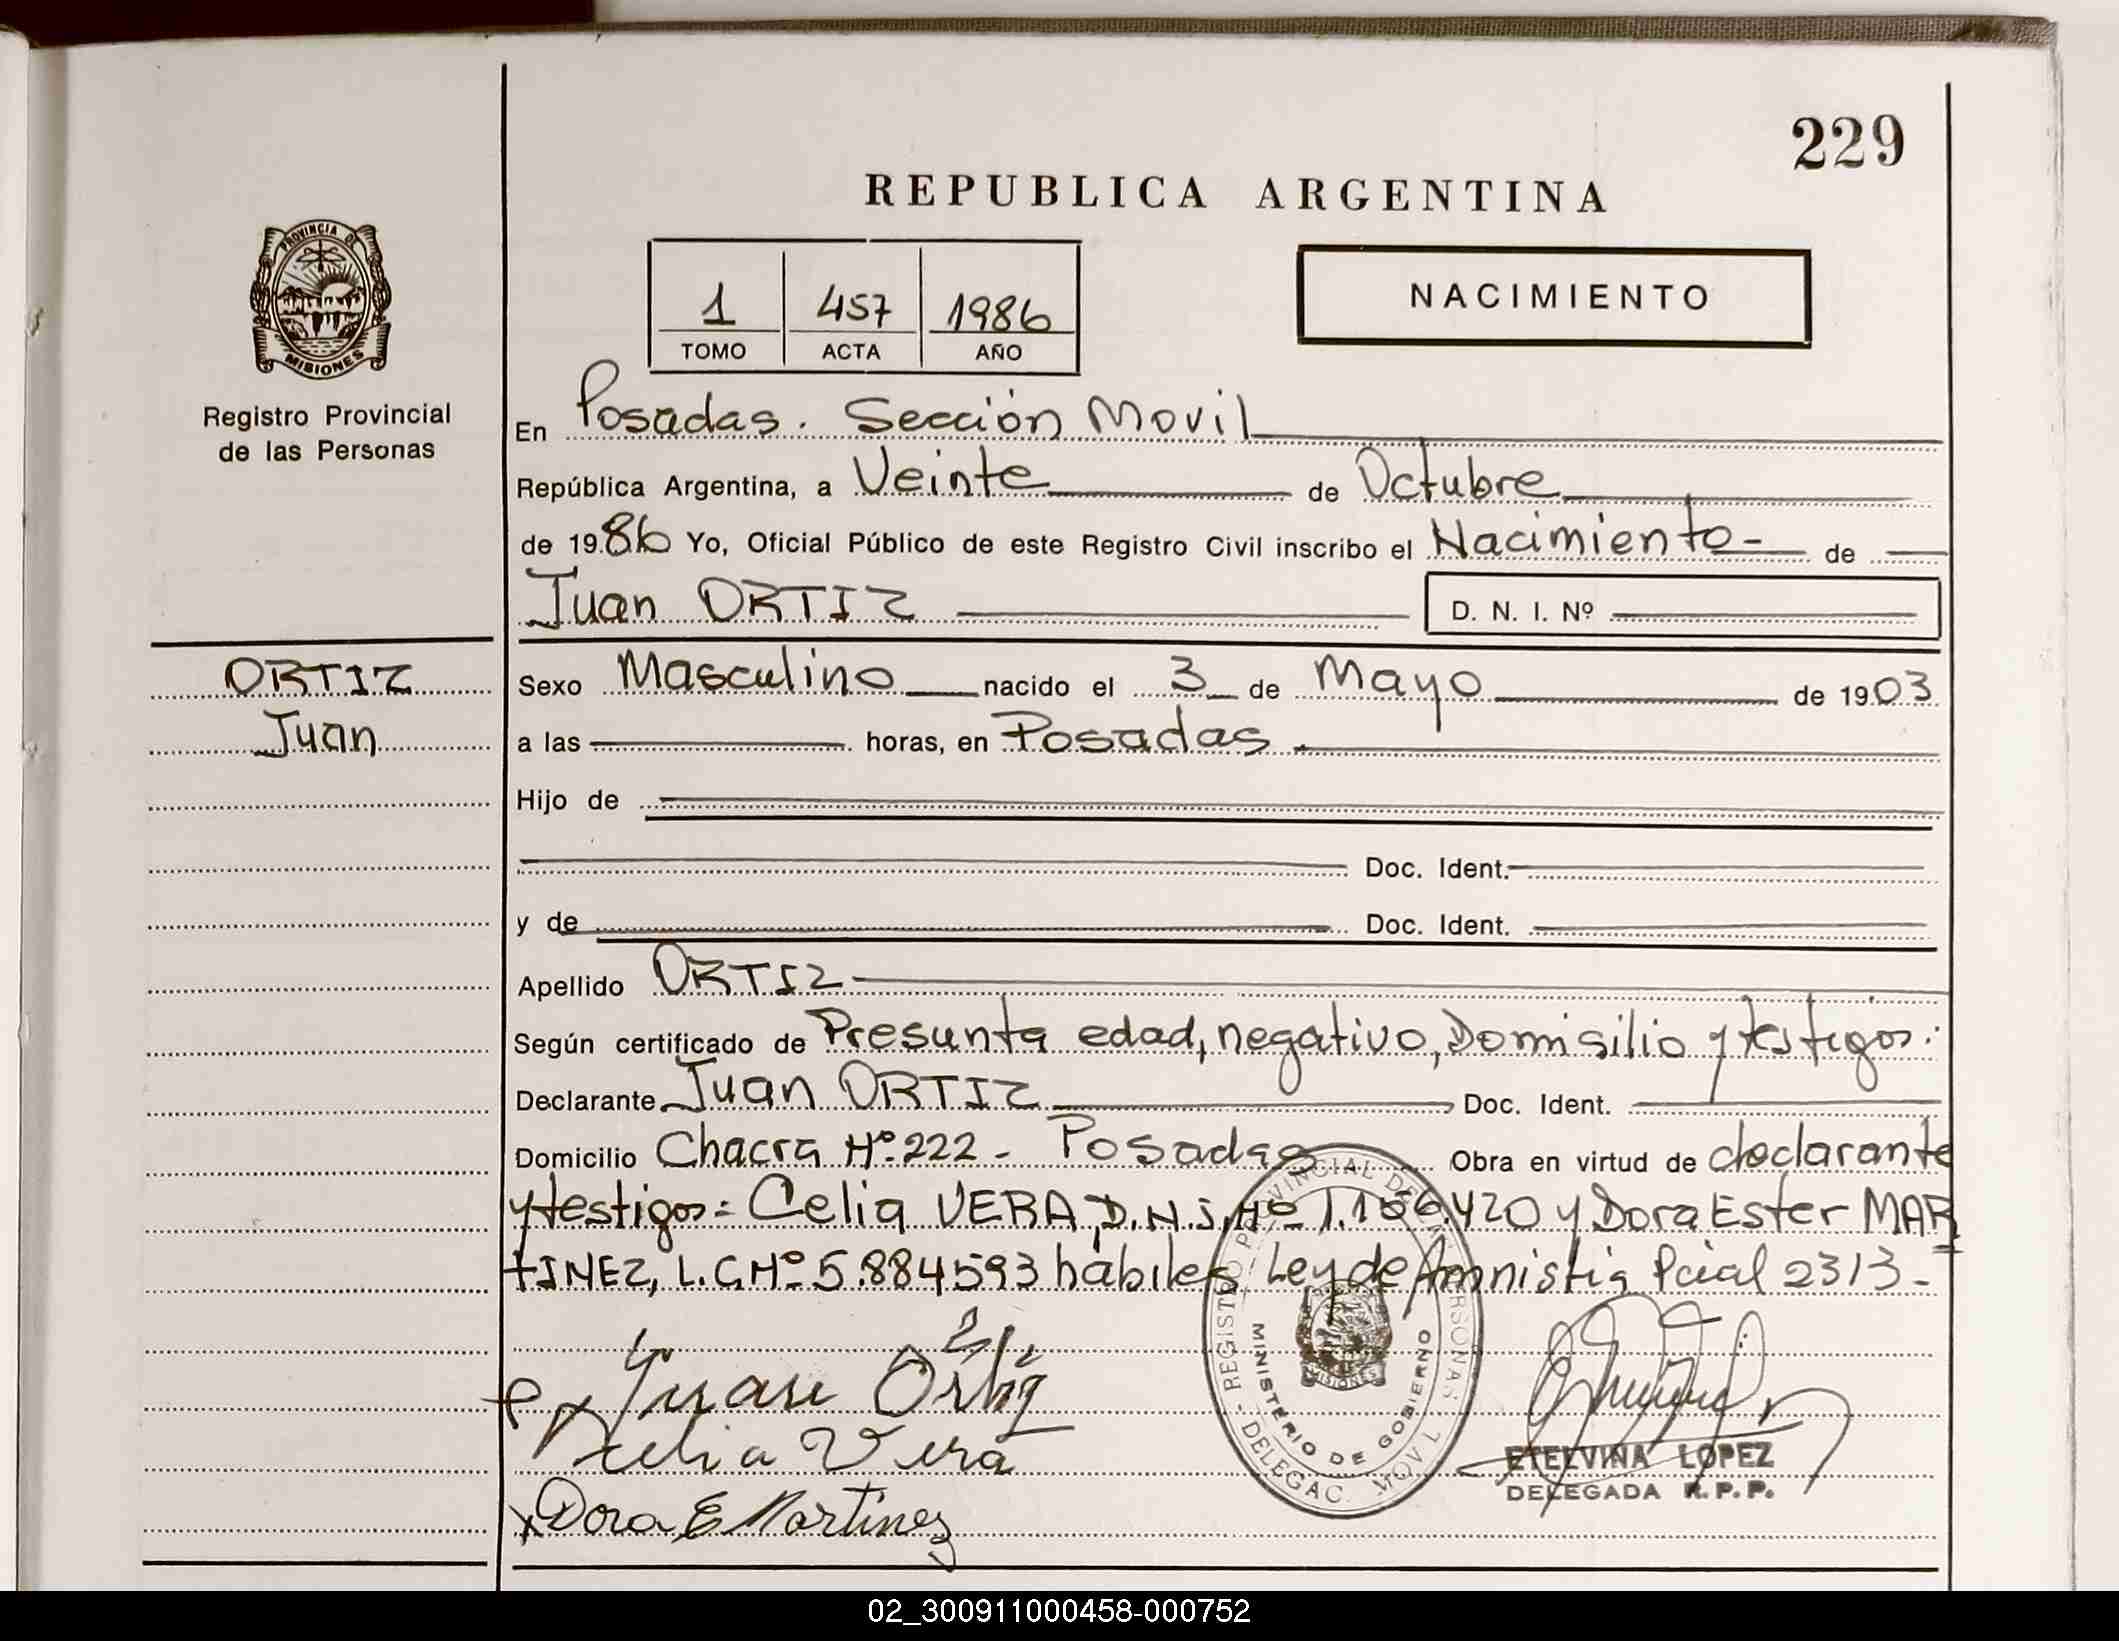 229
REPUBLICA ARGENTINA
PROVINCIA DE
MISIONES
Registro Provincial
de las Personas
1 457 1986
TOMO ACTA AÑO
NACIMIENTO
En Posadas. Sección Movil
República Argentina, a Veinte de Octubre
de 1986 Yo, Oficial Público de este Registro Civil inscribo el Nacimiento - de
Juan ORTIZ D. N. I. Nº
ORTIZ
Juan
Sexo Masculino nacido el 3 de Mayo de 1903
a las horas, en Posadas
Hijo de
Doc. Ident.
y de Doc. Ident.
Apellido ORTIZ
Según certificado de Presunta edad, negativo, Domisilio y testigos:
Declarante Juan ORTIZ Doc. Ident.
Domicilio Chacra Nº 222 - Posadas Obra en virtud de declarante
y testigos: Celia VERA D.N.I. Nº 1.156.420 y Dora Ester MAR
TINEZ, L.C. Nº 5.884593 hábiles Ley de Amnistia Pcial 2313 -
Juan Ortiz
Celia Vera
Dora E Martinez
REGISTRO PROVINCIAL DE LAS PERSONAS - DELEGAC. MOVIL -
MINISTERIO DE GOBIERNO
MISIONES
ETELVINA LOPEZ
DELEGADA R.P.P.
02_300911000458-000752